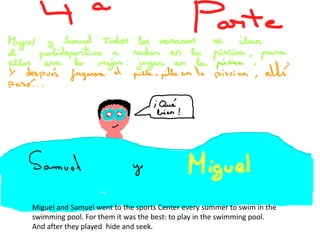 4ª Parte
Miguel y Samuel todos los veranos se iban
al polideportivo a nadar en la piscina, para
ellos era lo mejor: jugar en la piscina.
Y después jugaron al pilla-pilla en la piscina, allí
pasó...
¡Qué
bien!
Samuel y Miguel
Miguel and Samuel went to the sports Center every summer to swim in the
swimming pool. For them it was the best: to play in the swimming pool.
And after they played hide and seek.